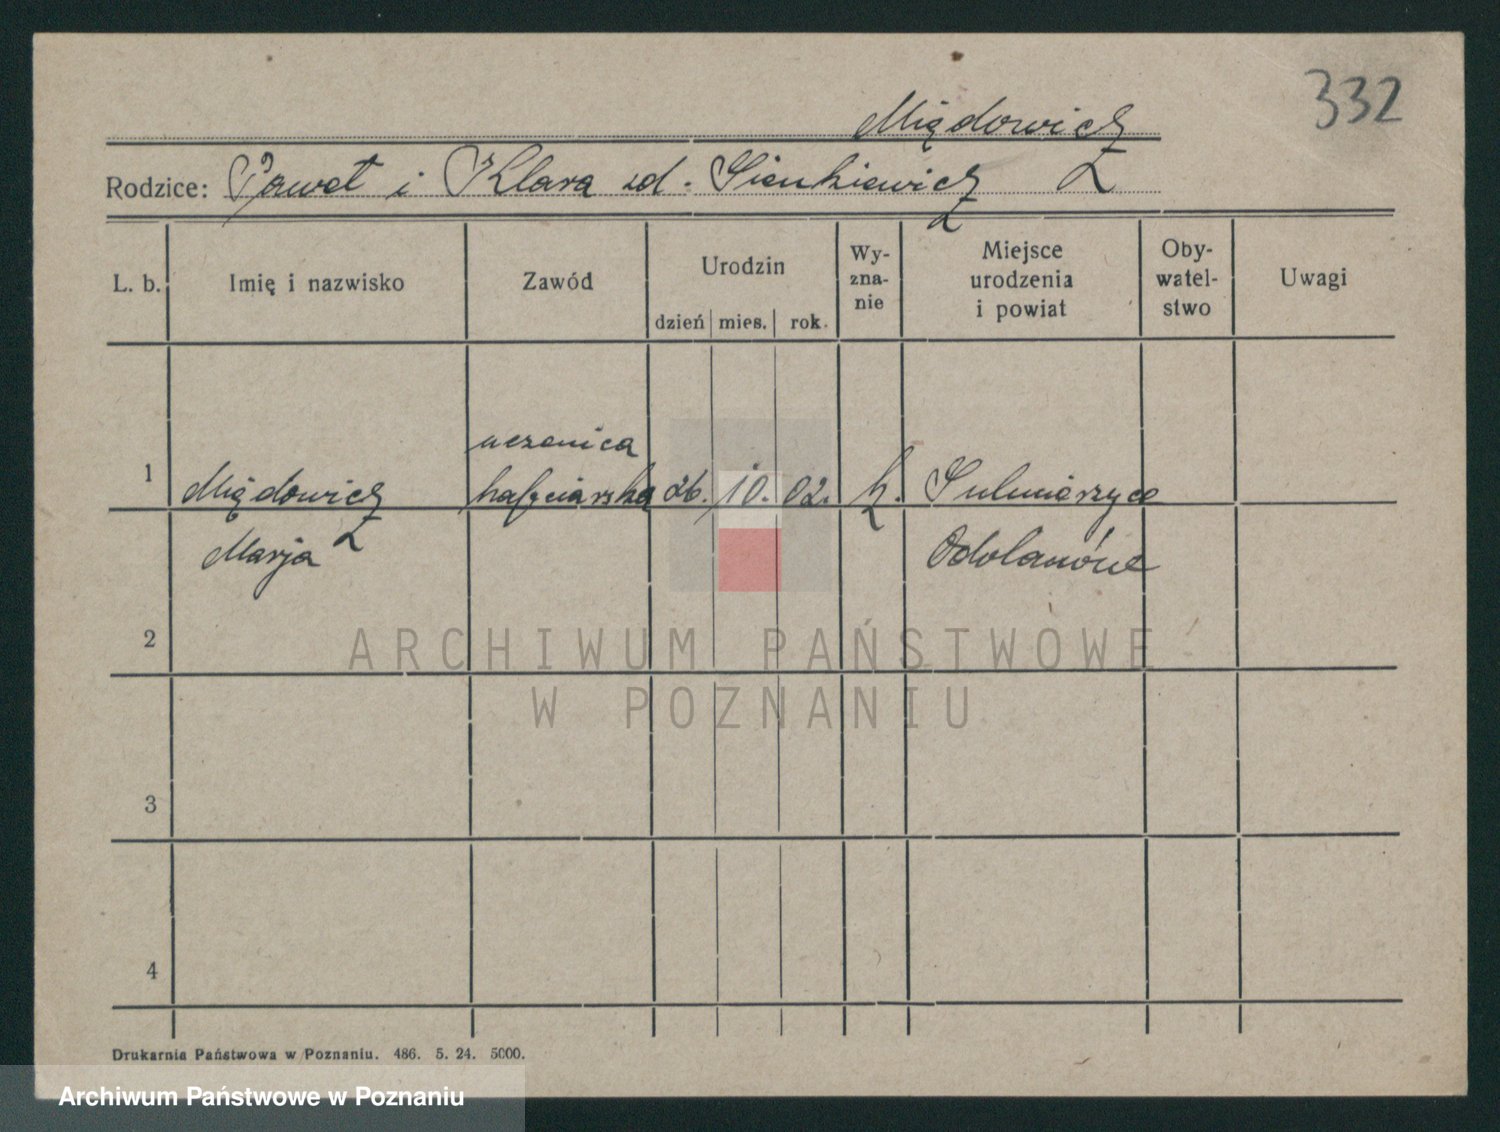 332
Międowicz
Rodzice: Paweł i Klara zd. Sienkiewicz
L. b. Imię i nazwisko Zawód Urodzin dzień mies. rok. Wy-zna-nie Miejsce urodzenia i powiat Oby-watel-stwo Uwagi
uczenica
1 Międowicz hafciarska 26. 10. 02. k. Sulmierzyce
Marja Odolanów
2
ARCHIWUM PAŃSTWOWE
W POZNANIU
3
4
Drukarnia Państwowa w Poznaniu. 486. 5. 24. 5000.
Archiwum Państwowe w Poznaniu